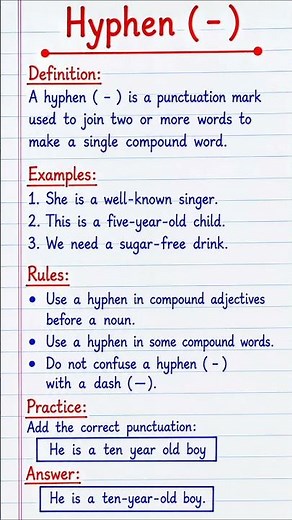 Hyphen ( - )
Definition:
A hyphen ( - ) is a punctuation mark
used to join two or more words to
make a single compound word.
Examples:
1. She is a well-known singer.
2. This is a five-year-old child.
3. We need a sugar-free drink.
Rules:
• Use a hyphen in compound adjectives
before a noun.
• Use a hyphen in some compound words.
• Do not confuse a hyphen ( - )
with a dash (—).
Practice:
Add the correct punctuation:
He is a ten year old boy
Answer:
He is a ten-year-old boy.